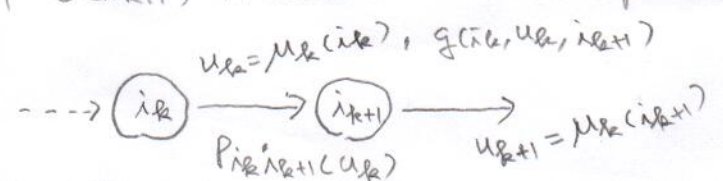 u_k = μ_k(i_k), g(i_k, u_k, i_{k+1})
i_k i_{k+1}
p_{i_k i_{k+1}}(u_k) u_{k+1} = μ_k(i_{k+1})